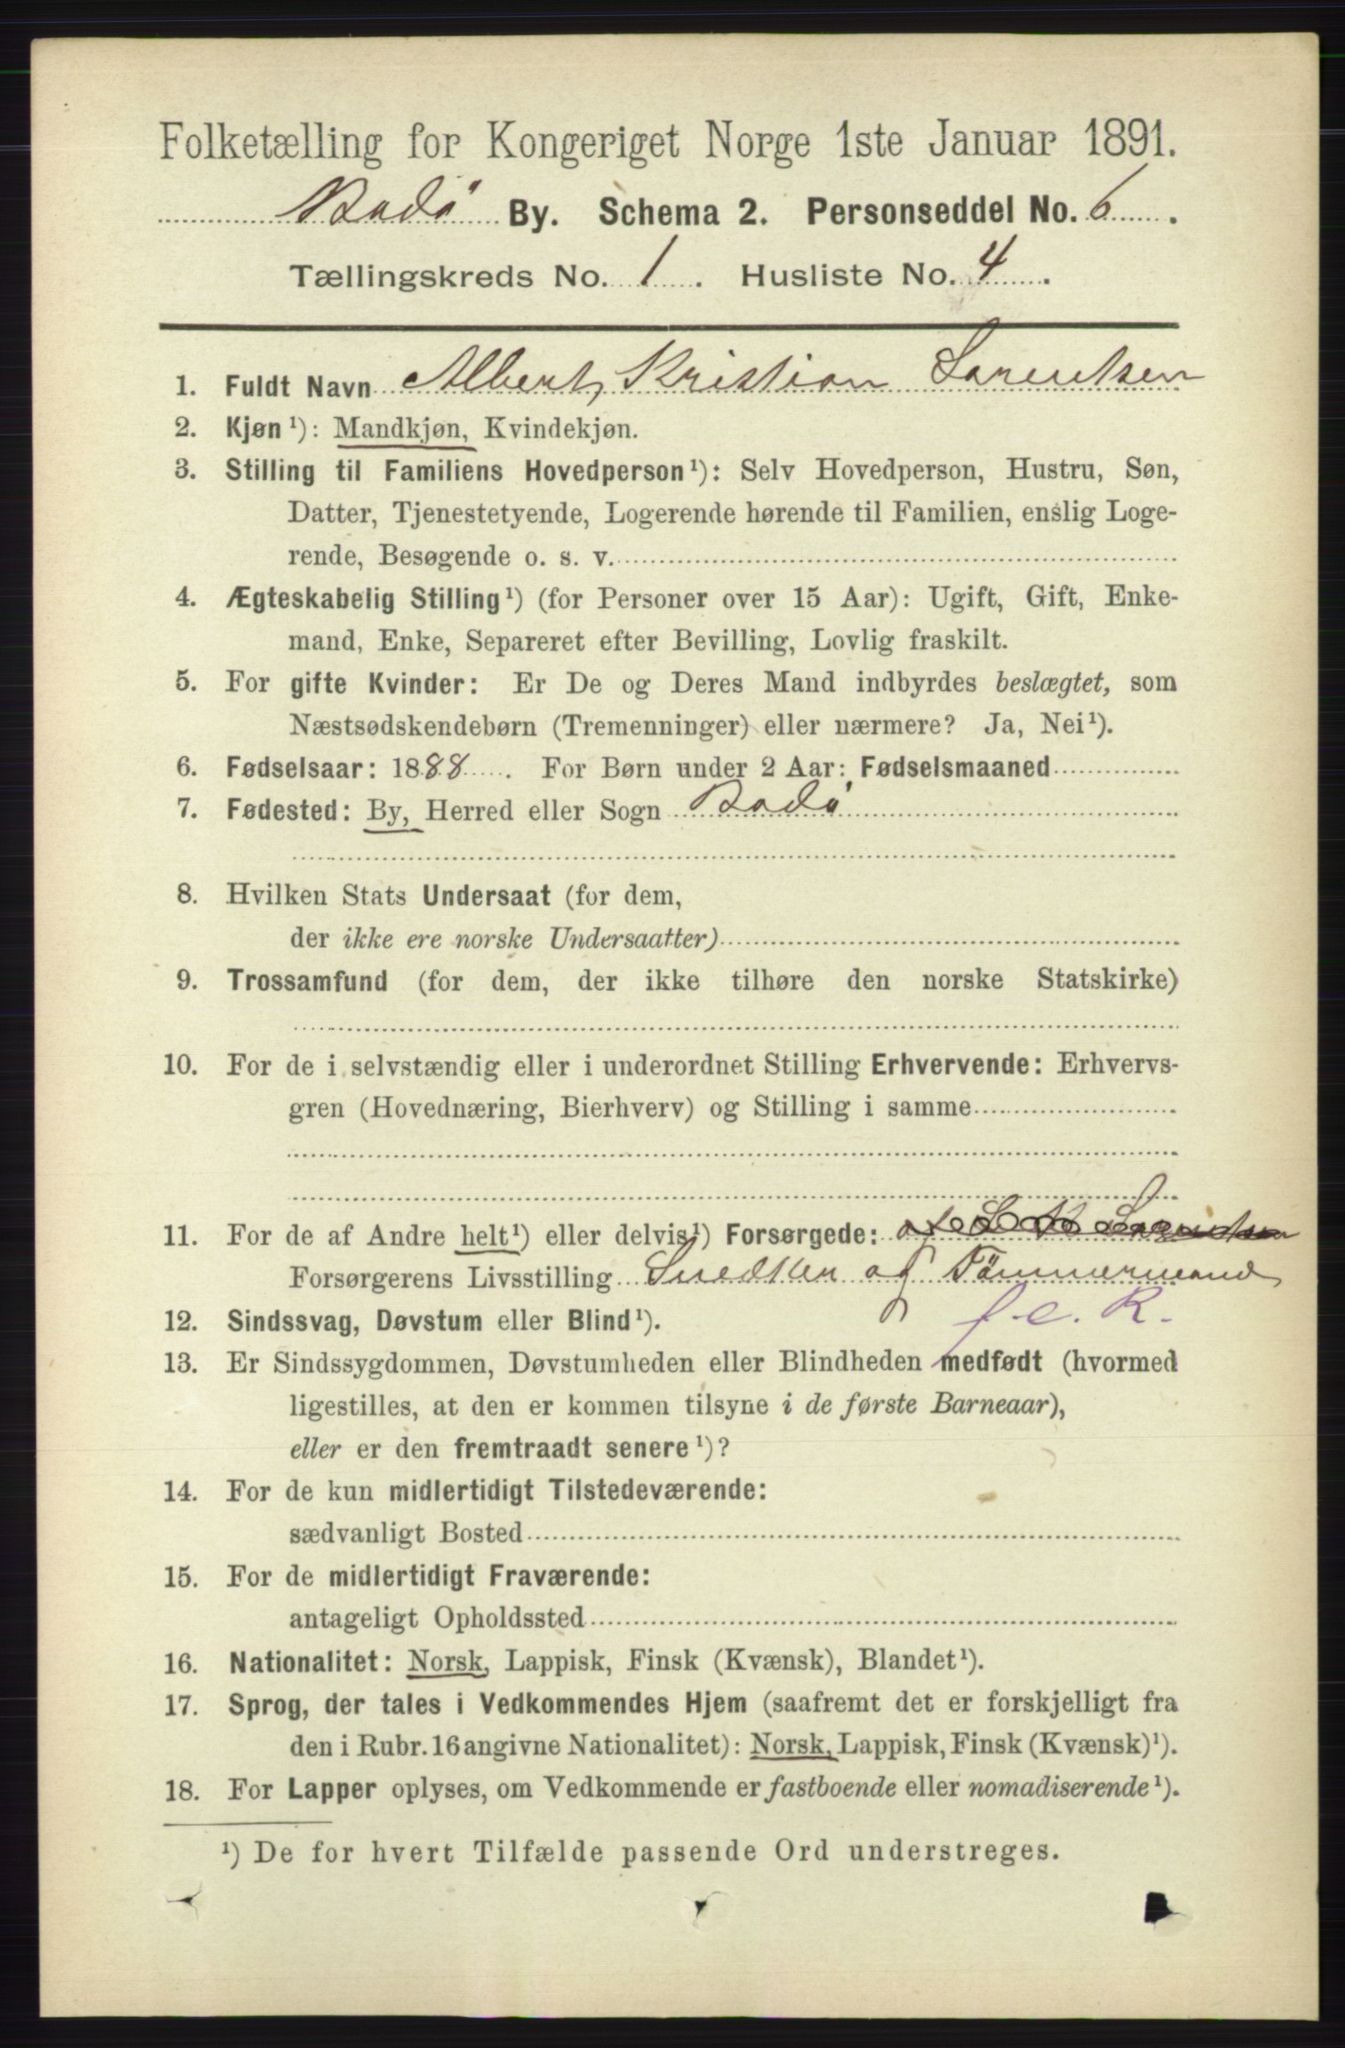 Folketælling for Kongeriget Norge 1ste Januar 1891.
Bodö By. Schema 2. Personseddel No. 6.
Tællingskreds No. 1. Husliste No. 4.
1. Fuldt Navn Albert Kristian Sorentsen
2. Kjøn ¹): Mandkjøn, Kvindekjøn.
3. Stilling til Familiens Hovedperson ¹): Selv Hovedperson, Hustru, Søn,
Datter, Tjenestetyende, Logerende hørende til Familien, enslig Loge-
rende, Besøgende o. s. v.
4. Ægteskabelig Stilling ¹) (for Personer over 15 Aar): Ugift, Gift, Enke-
mand, Enke, Separeret efter Bevilling, Lovlig fraskilt.
5. For gifte Kvinder: Er De og Deres Mand indbyrdes beslægtet, som
Næstsødskendebørn (Tremenninger) eller nærmere? Ja, Nei ¹).
6. Fødselsaar: 1888. For Børn under 2 Aar: Fødselsmaaned
7. Fødested: By, Herred eller Sogn Bodö
8. Hvilken Stats Undersaat (for dem,
der ikke ere norske Undersaatter)
9. Trossamfund (for dem, der ikke tilhøre den norske Statskirke)
10. For de i selvstændig eller i underordnet Stilling Erhvervende: Erhvervs-
gren (Hovednæring, Bierhverv) og Stilling i samme
11. For de af Andre helt ¹) eller delvis ¹) Forsørgede:
Forsørgerens Livsstilling Snedker og Tömmermand
f. e. R.
12. Sindssvag, Døvstum eller Blind ¹).
13. Er Sindssygdommen, Døvstumheden eller Blindheden medfødt (hvormed
ligestilles, at den er kommen tilsyne i de første Barneaar),
eller er den fremtraadt senere ¹)?
14. For de kun midlertidigt Tilstedeværende:
sædvanligt Bosted
15. For de midlertidigt Fraværende:
antageligt Opholdssted
16. Nationalitet: Norsk, Lappisk, Finsk (Kvænsk), Blandet ¹).
17. Sprog, der tales i Vedkommendes Hjem (saafremt det er forskjelligt fra
den i Rubr. 16 angivne Nationalitet): Norsk, Lappisk, Finsk (Kvænsk) ¹).
18. For Lapper oplyses, om Vedkommende er fastboende eller nomadiserende ¹).
¹) De for hvert Tilfælde passende Ord understreges.